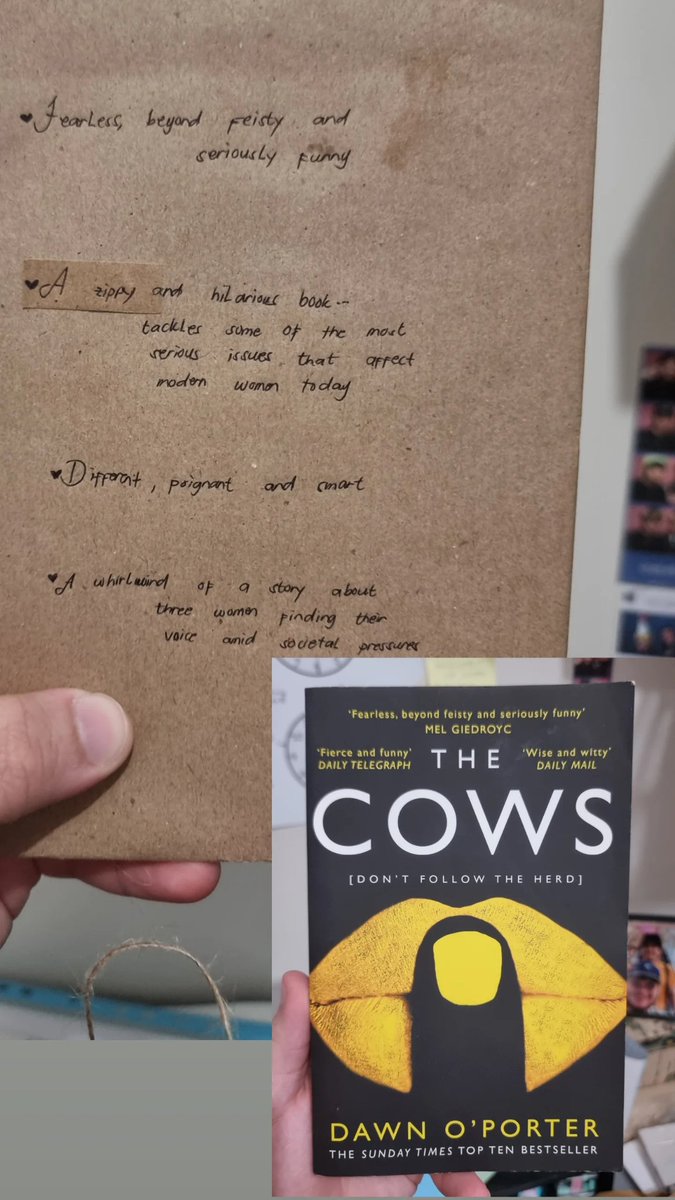 ♥Fearless, beyond feisty and
seriously funny
♥A zippy and hilarious book...
tackles some of the most
serious issues that affect
modern women today
♥Different, poignant and smart
♥A whirlwind of a story about
three women finding their
voice amid societal pressures
'Fearless, beyond feisty and seriously funny'
MEL GIEDROYC
'Fierce and funny'
DAILY TELEGRAPH
'Wise and witty'
DAILY MAIL
THE
COWS
[DON'T FOLLOW THE HERD]
DAWN O'PORTER
THE SUNDAY TIMES TOP TEN BESTSELLER